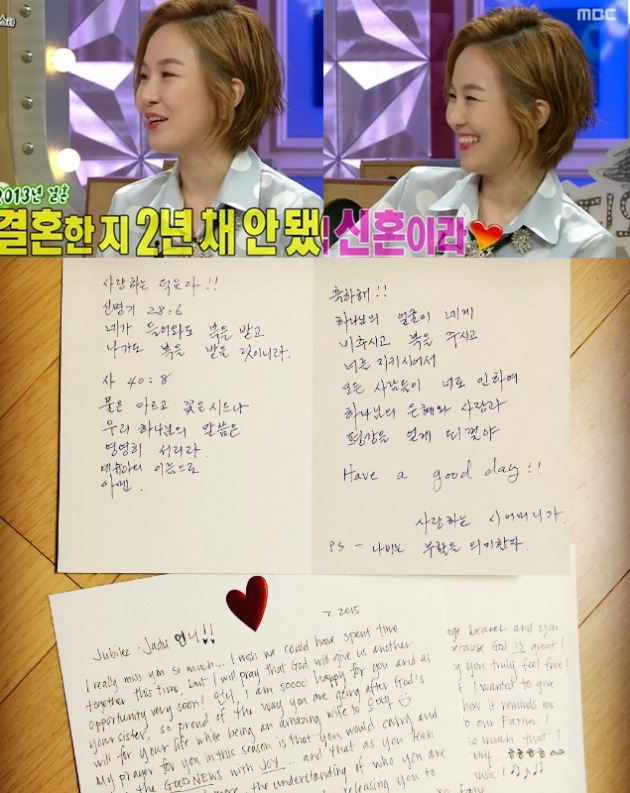 MBC
2013년 결혼
결혼한 지 2년 채 안 됐
신혼이라
사랑하는 덕은아!!
신명기 28:6
네가 들어와도 복을 받고
나가도 복을 받을 것이니라.
사 40:8
풀은 마르고 꽃은 시드나
우리 하나님의 말씀은
영영히 서리라.
예슈아의 이름으로
아멘.
축하해!!
하나님의 얼굴이 네게
비추시고 복을 주시고
너를 지키시어서
모든 사람들이 너로 인하여
하나님의 은혜와 사랑과
평강을 얻게 되길
Have a good day!!
사랑하는 시어머니가.
PS - 나비는 부활을 의미한다.
7. 2015
Jubilee - Jadu 언니!!
I really miss you so much... I wish we could have spent time
together this time, but I will pray that God will give us another
opportunity very soon! 언니, I am soooo happy for you and as
your sister, so proud of the way you are going after God's
will for your life while being an amazing wife to
My prayer for you in this season is that you would carry and
the GOOD NEWS with JOY... and that as you
the understanding of who you are
releasing you to
age bearer and you
because God IS great!
you truly feel free!
I wanted to give
how it reminds me
to our Father!
so much that I
music!